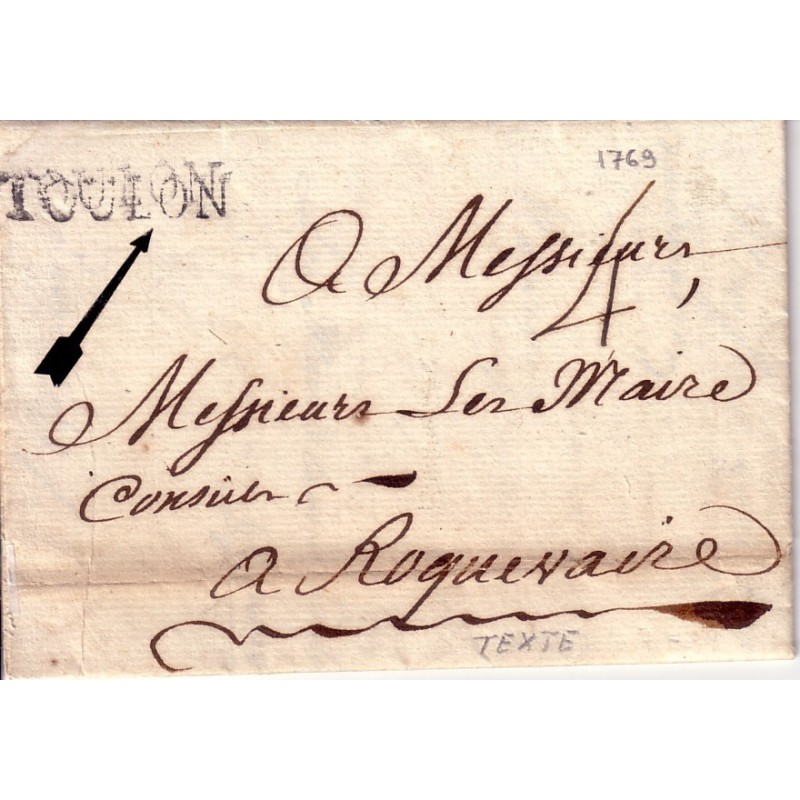 TOULON
1769
A Messieurs
4
Messieurs Les Maire
Consuler
a Roquevaire
TEXTE